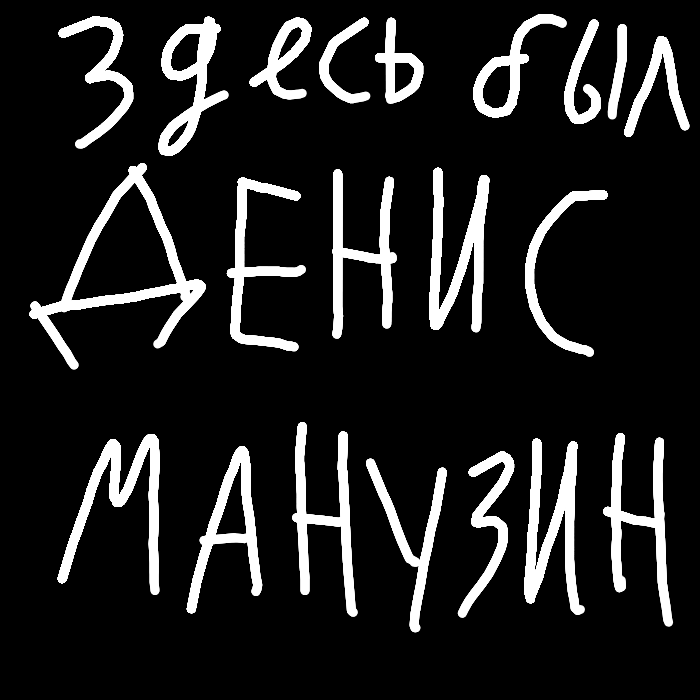 здесь был
ДЕНИС
МАНУЗИН